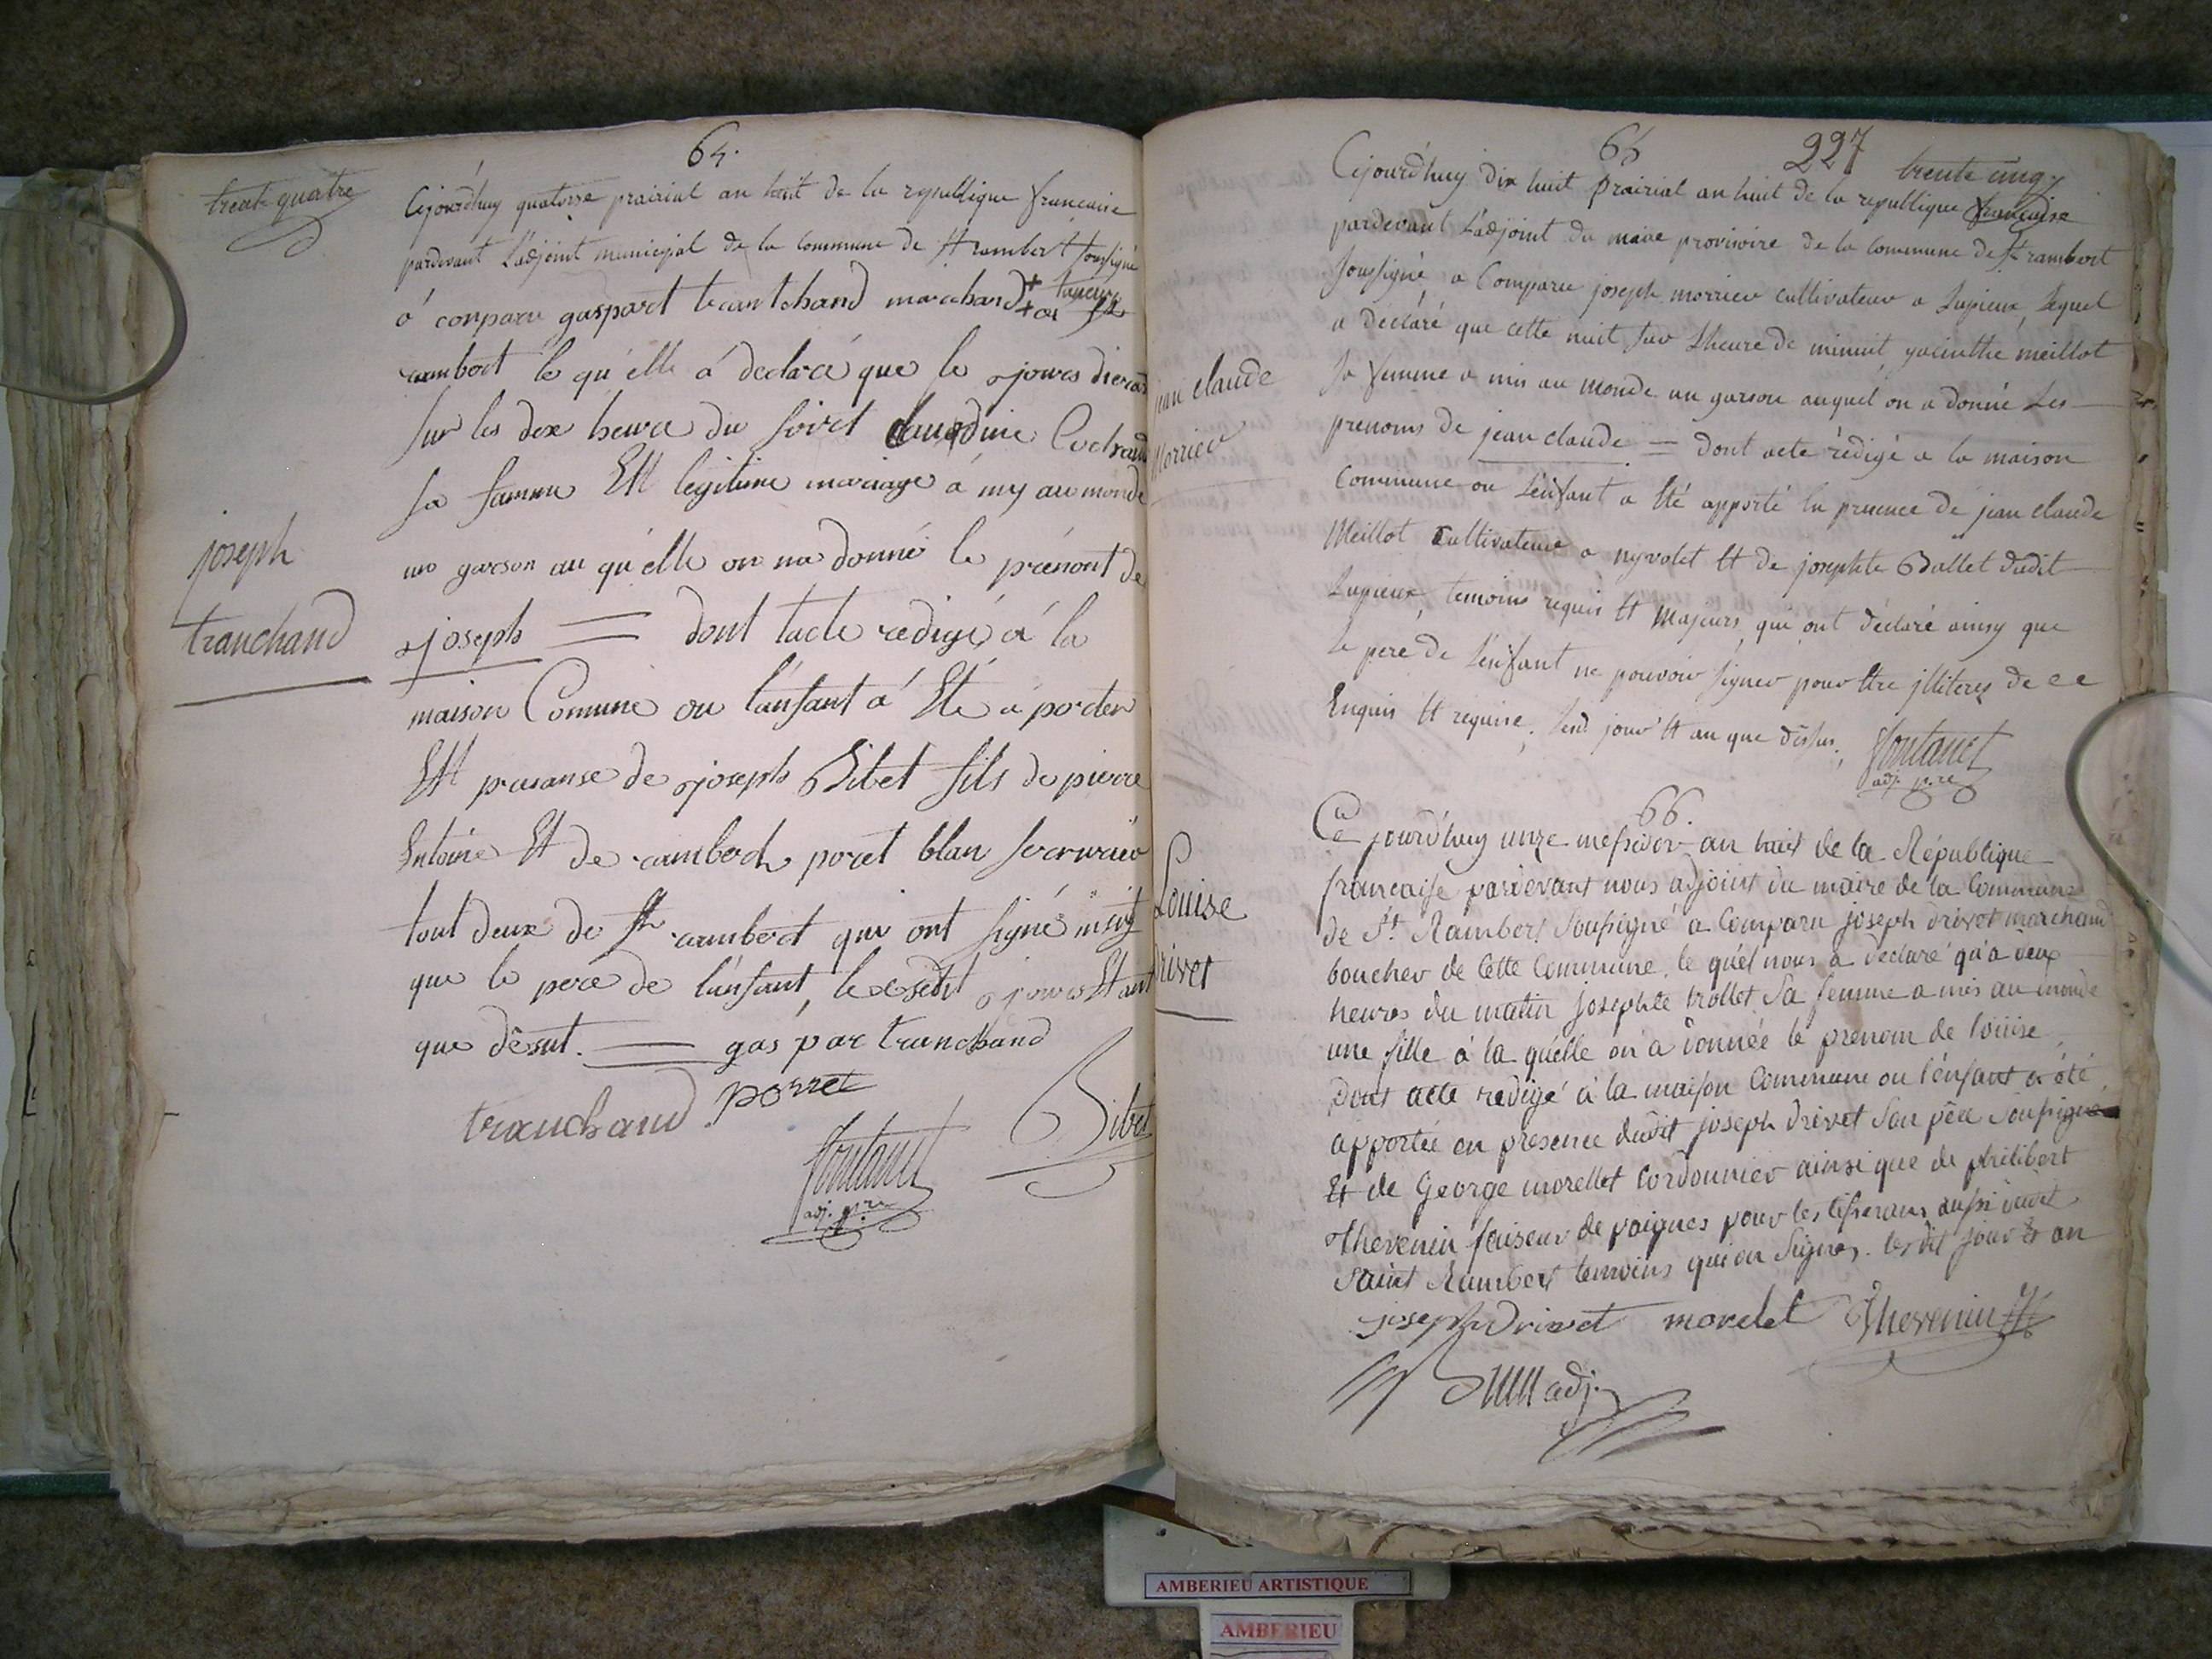 64.
trente quatre
Cejourd'huy quatorse prairial an huit de la republique francaise
pardevant L'adjoint municipal de la Commune de St rambert soussigné
á conparu gaspart trantchand marchand taneur a St
rambert le qu'elle á declaré que le
sur les dix heure du soirt Claudine Cochrand
sa famme Est legitime mariage á my au monde
un garson au qu'elle on na donné le prénont de
joseph
tranchand
joseph = dont tacte redigé á la
maison Comune ou l'ansant á Eté a porder
Est prasanse de joseph Bibet fils de pierre
Entoine Et de rambert poret blan
tout deux de St rambert qui ont signé insy
que le pere de l'ansant, les dit jours Et ant
que désut. — gas par tranchand
tranchand porret
Bibet
fontanet
adj. p.re
65 227
trente cinq
Cejourd'huy dix huit prairial an huit de la republique francaise
pardevant L'adjoint du maire provisoire de la Commune de St rambert
soussigné a Comparu joseph morrier cultivateur a Lupieux, Lequel
a declaré que cette nuit sur L'heure de minuit, yacinthe meillot
jean claude
morrier
sa femme a mis au monde un garson auquel on a donné Les
prenoms de jean claude = dont acte rédigé a la maison
Commune ou L'enfant a Eté apporté En presence de jean claude
Meillot Cultivateur a nyvolet Et de josephte Ballet dudit
Lupieux, temoins requis Et majeurs, qui ont déclaré ainsy que
Le pere de L'enfant ne pouvoir signer pour Etre jlliteres de ce
Enquis Et requise, Lesd. jour Et an que dessus.
fontanet
adj. p.re
66.
Ce jourd'huy unze messidor an huit de la République
francaise pardevant nous adjoint du maire de la Commune
de St. Rambert Soussigné a Comparu joseph drivet marchand
Louise
drivet
boucher de Cette Commune, le quel nous a declaré qu'à deux
heures du matin josephte trollet Sa femme a mis au monde
une fille à la quélle on a donnée le prenom de louise,
Dont acte redigé à la maison Commune ou l'énfant a été
apportée en presence dudit joseph drivet Son pére Soussigné
Et de George morellet Cordonnier ainsi que de philibert
thevenin faiseur de paignes pour les tisserans aussi dudit
Saint Rambert temoins qui on Signés. les dit jour & an
joseph drivet morelet Thevenin
adj.
AMBERIEU ARTISTIQUE
AMBERIEU